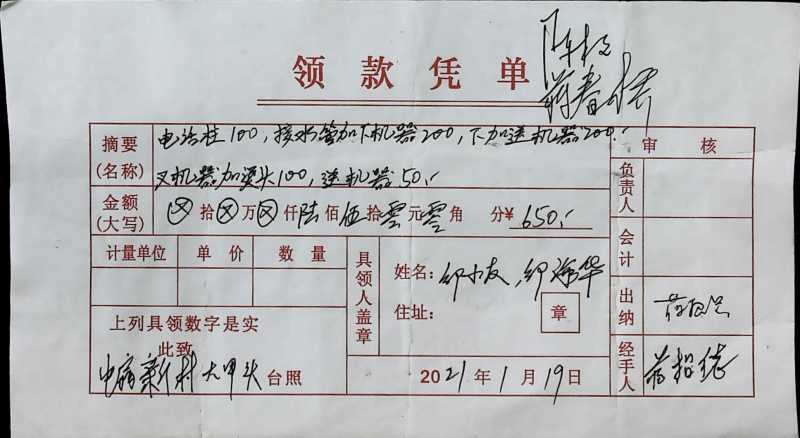 领款凭单
摘要
(名称)
100，接水管加下机器200，下加送机器200.-
叉机器加深头100，送机器50.-
审核
负责人
金额
(大写)
拾 万 仟陆佰伍拾零元零角 分¥ 650.-
会计
计量单位 单价 数量
具领人盖章
姓名：
住址：
章
出纳
上列具领数字是实
此致
新村大甲头台照
2021年1月19日
经手人